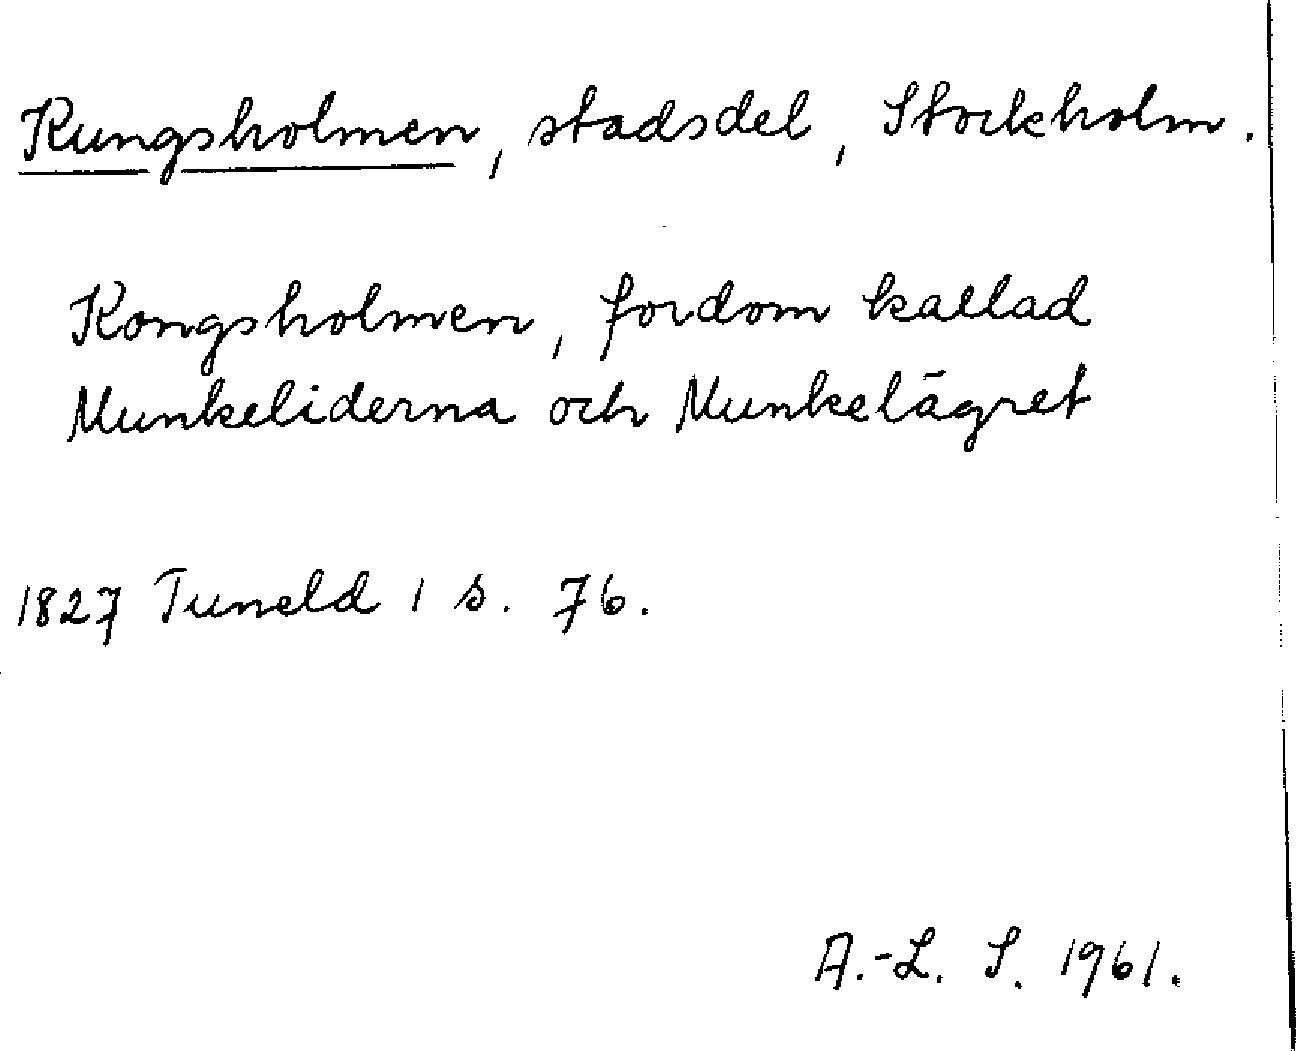 Kungsholmen, stadsdel, Stockholm.
Kongsholmen, fordom kallad
Munkeliderna och Munkelägret
1827 Tuneld 1 s. 76.
A.-L. S. 1961.